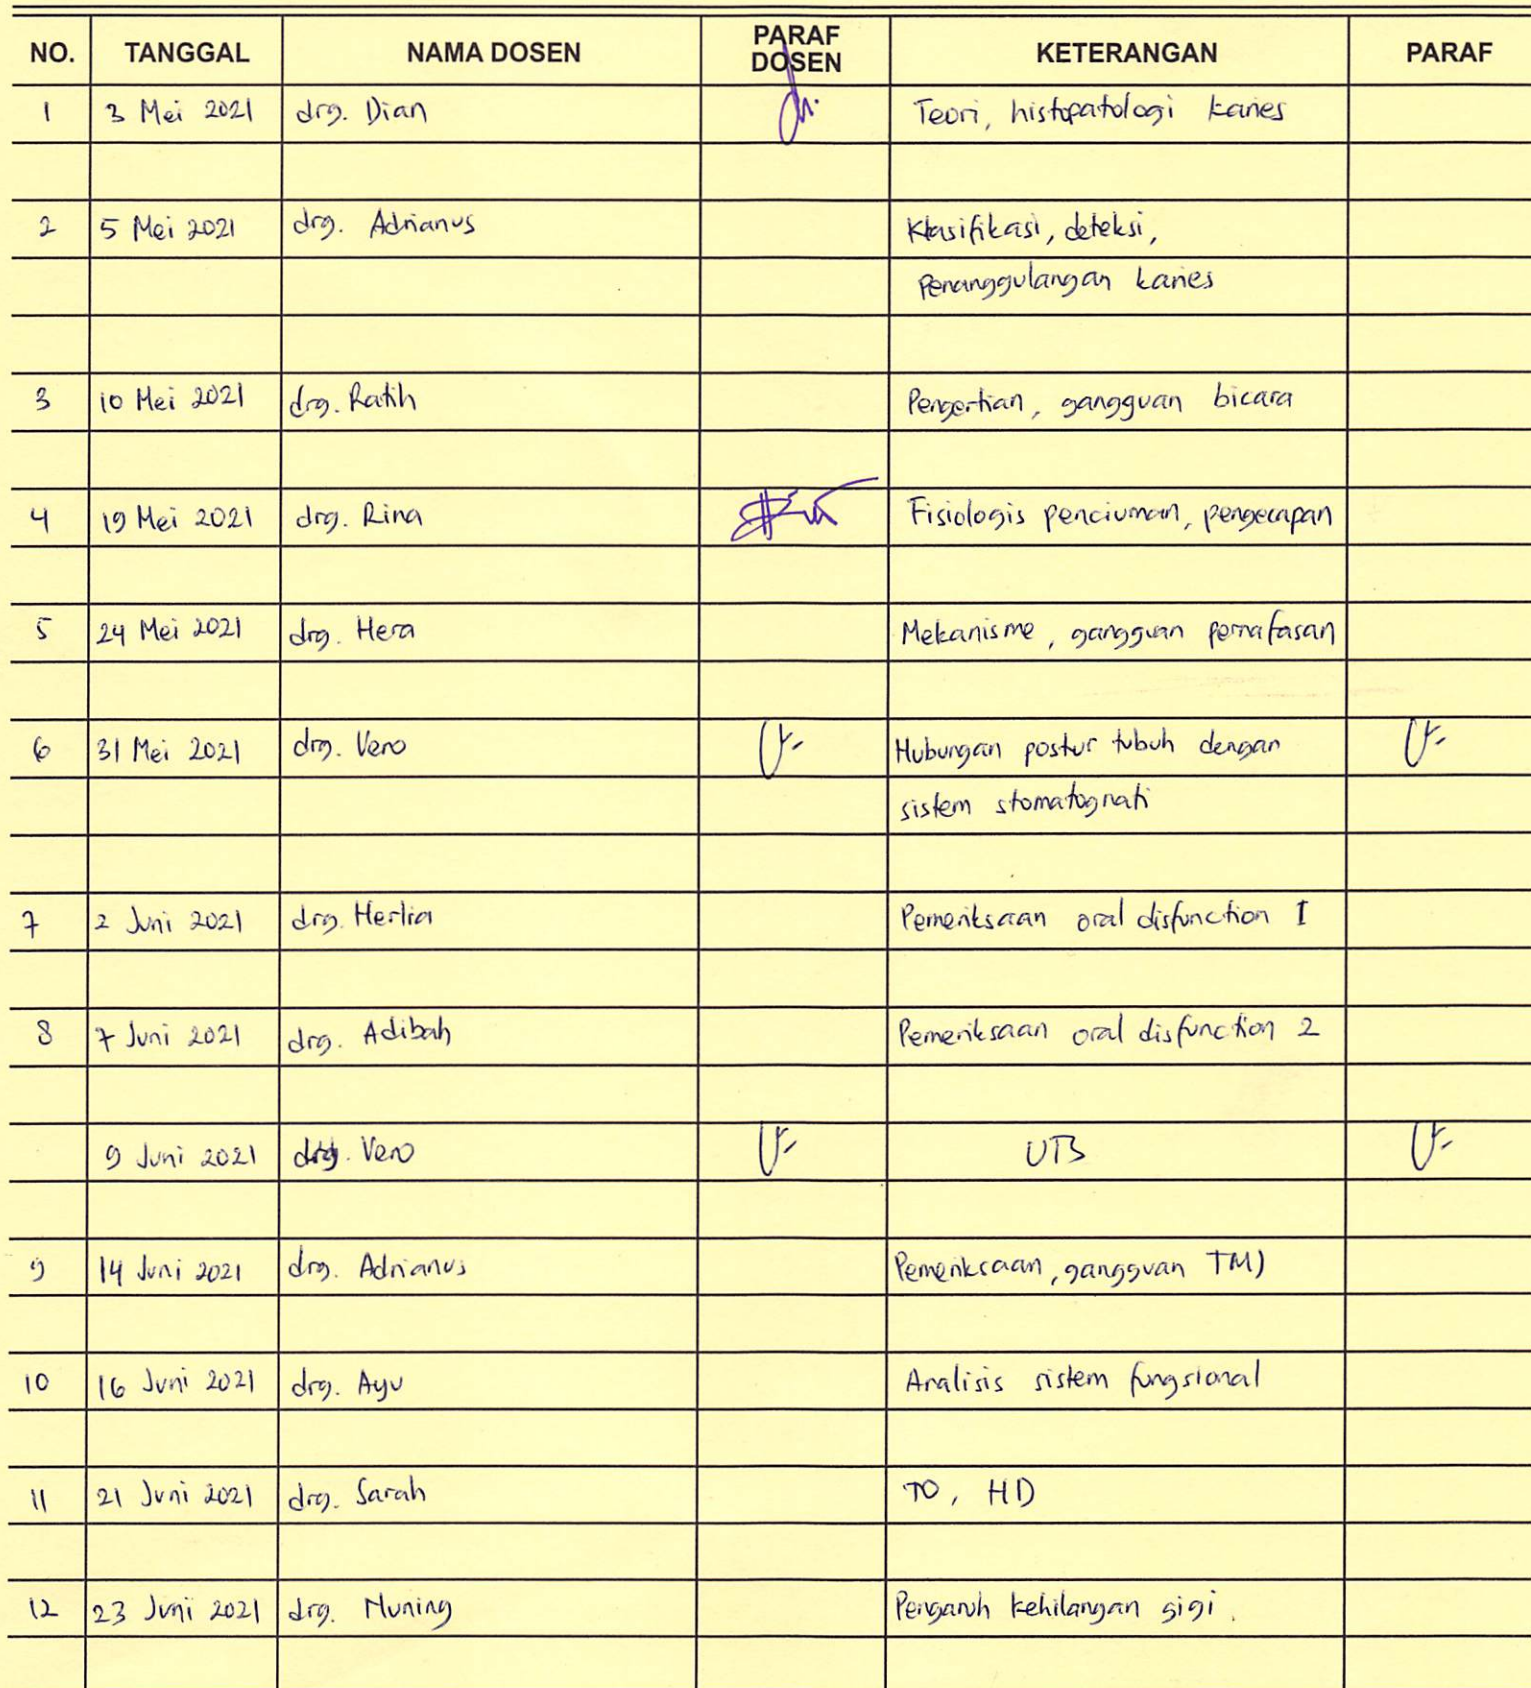 NO. TANGGAL NAMA DOSEN PARAF DOSEN KETERANGAN PARAF
1 3 Mei 2021 drg. Dian Teori, histopatologi karies
2 5 Mei 2021 drg. Adrianus Klasifikasi, deteksi,
Penanggulangan karies
3 10 Mei 2021 drg. Ratih Pengertian, gangguan bicara
4 19 Mei 2021 drg. Rina Fisiologis penciuman, pengecapan
5 24 Mei 2021 drg. Hera Mekanisme, gangguan pernafasan
6 31 Mei 2021 drg. Vero Hubungan postur tubuh dengan
sistem stomatognati
7 2 Juni 2021 drg. Herlia Pemeriksaan oral disfunction I
8 7 Juni 2021 drg. Adibah Pemeriksaan oral disfunction 2
9 Juni 2021 drg. Vero UTB
9 14 Juni 2021 drg. Adrianus Pemeriksaan, gangguan TMJ
10 16 Juni 2021 drg. Ayu Analisis sistem fungsional
11 21 Juni 2021 drg. Sarah TO, HD
12 23 Juni 2021 drg. Nuning Pengaruh kehilangan gigi.